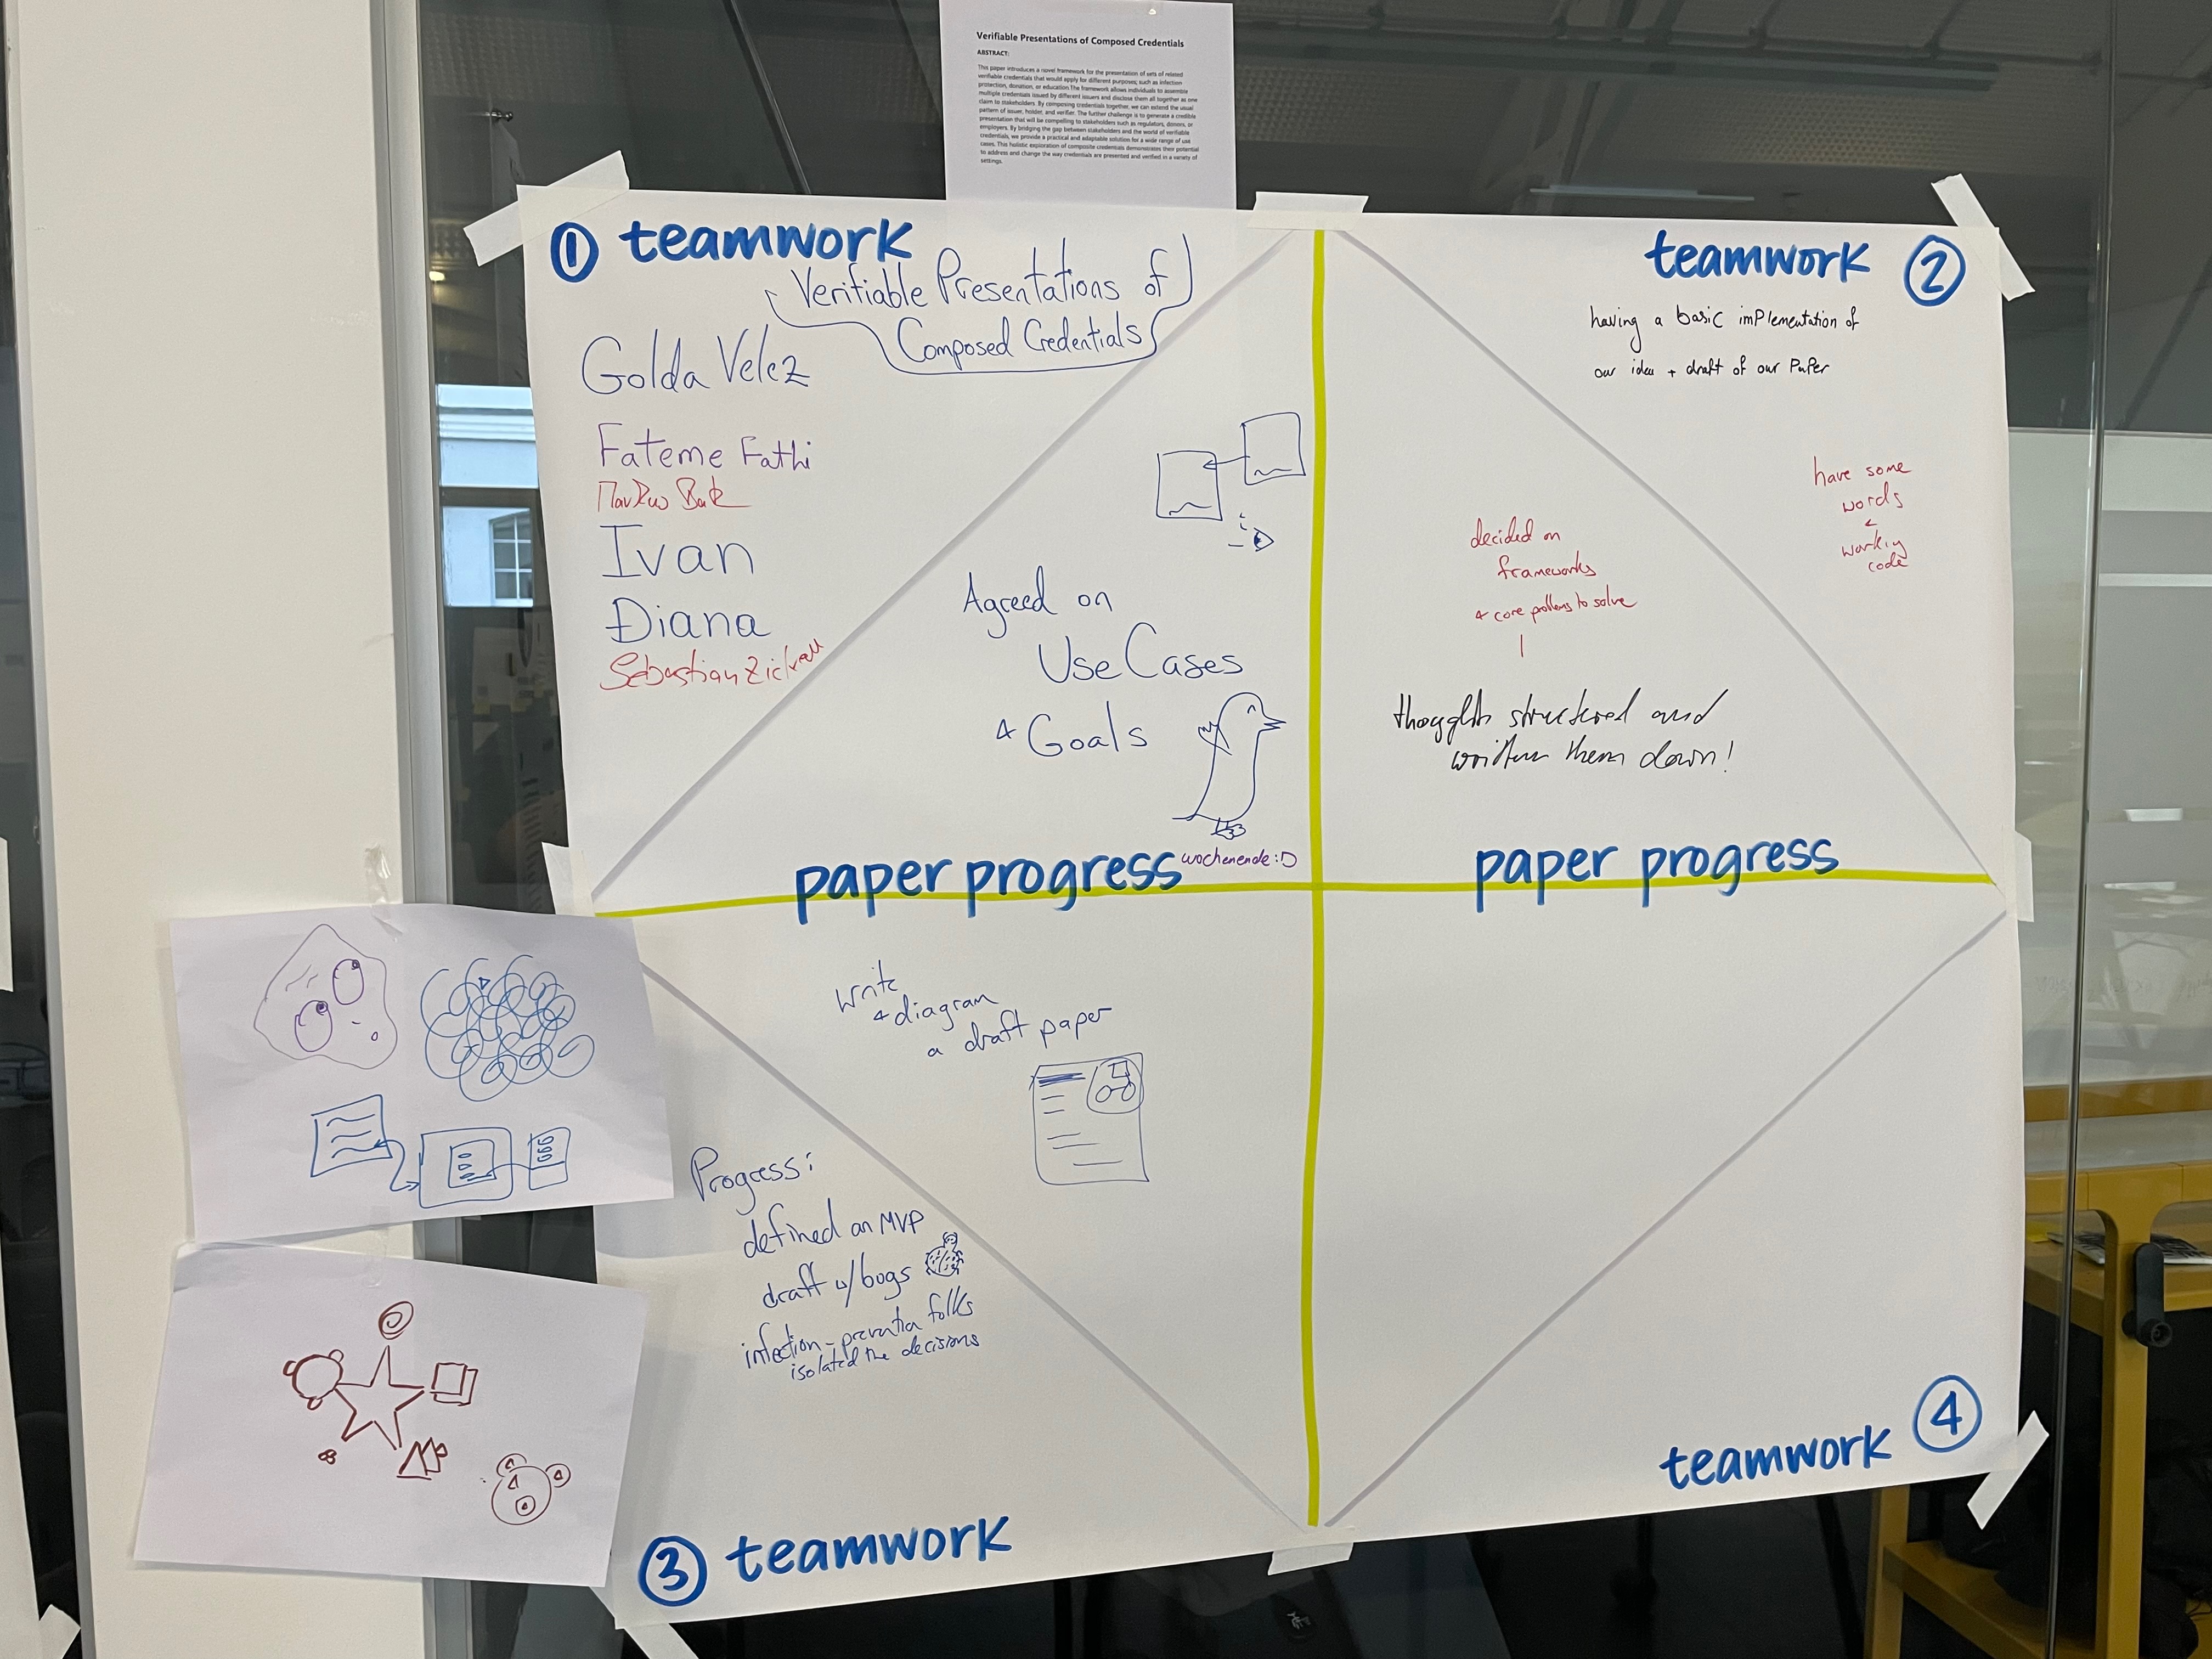 Verifiable Presentations of Composed Credentials
ABSTRACT:
This paper introduces a novel framework for the presentation of sets of related
verifiable credentials that would apply for different purposes; such as infection
protection, donation, or education.The framework allows individuals to assemble
multiple credentials issued by different issuers and disclose them all together as one
claim to stakeholders. By composing credentials together, we can extend the usual
pattern of issuer, holder, and verifier. The further challenge is to generate a credible
presentation that will be compelling to stakeholders such as regulators, donors, or
employers. By bridging the gap between stakeholders and the world of verifiable
credentials, we provide a practical and adaptable solution for a wide range of use
cases. This holistic exploration of composite credentials demonstrates their potential
to address and change the way credentials are presented and verified in a variety of
settings.
1 teamwork
Verifiable Presentations of
Composed Credentials
Golda Velez
Fateme Fathi
Ivan
Diana
Sebastian
Agreed on
Use Cases
& Goals
wochenende :D
paper progress
teamwork 2
having a basic implementation of
our idea + draft of our Paper
have some
words
&
working
code
decided on
frameworks
& core problems to solve
thoughts structured and
written them down!
paper progress
write
& diagram
a draft paper
Progress:
defined an MVP
draft w/bugs
infection-prevention folks
isolated the decisions
3 teamwork
teamwork 4